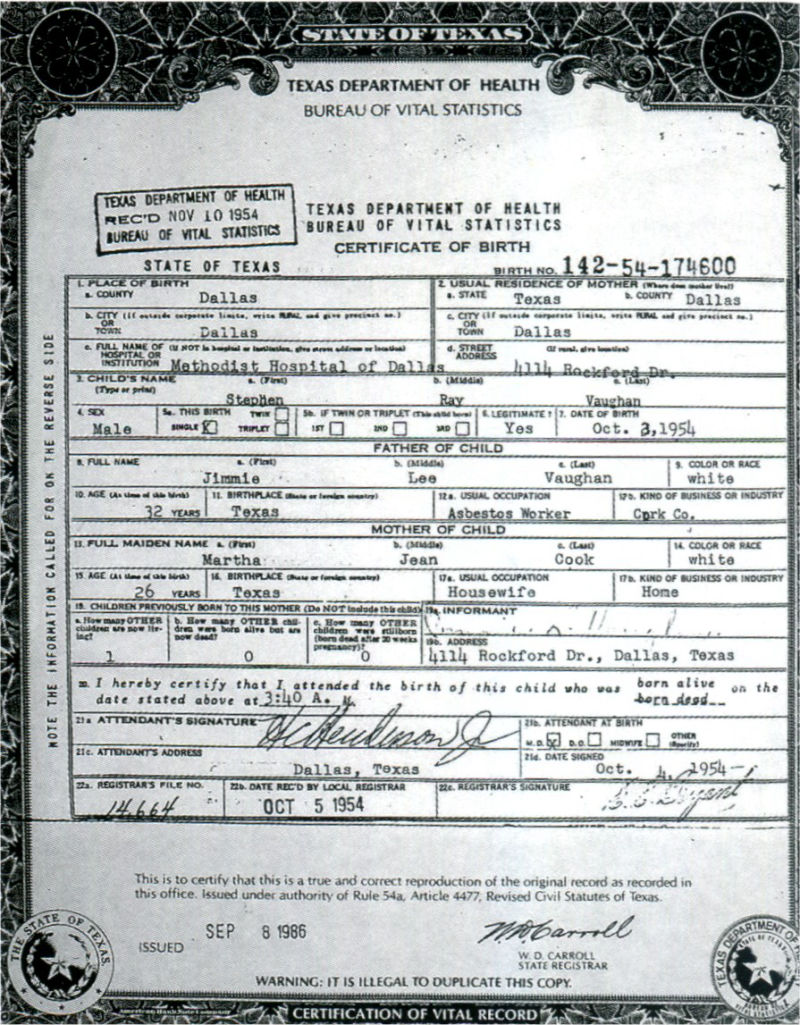 STATE OF TEXAS
TEXAS DEPARTMENT OF HEALTH
BUREAU OF VITAL STATISTICS
TEXAS DEPARTMENT OF HEALTH
REC'D NOV 10 1954
BUREAU OF VITAL STATISTICS
TEXAS DEPARTMENT OF HEALTH
BUREAU OF VITAL STATISTICS
CERTIFICATE OF BIRTH
STATE OF TEXAS BIRTH NO. 142-54-174600
1. PLACE OF BIRTH 2. USUAL RESIDENCE OF MOTHER (Where does mother live?)
a. COUNTY Dallas a. STATE Texas b. COUNTY Dallas
b. CITY (If outside corporate limits, write RURAL and give precinct no.) c. CITY (If outside corporate limits, write RURAL and give precinct no.)
OR OR
TOWN Dallas TOWN Dallas
c. FULL NAME OF (If NOT in hospital or institution, give street address or location) d. STREET (If rural, give location)
HOSPITAL OR ADDRESS
INSTITUTION Methodist Hospital of Dallas 4114 Rockford Dr.
3. CHILD'S NAME a. (First) b. (Middle) c. (Last)
(Type or print) Stephen Ray Vaughan
4. SEX 5a. THIS BIRTH TWIN 5b. IF TWIN OR TRIPLET (This child born) 6. LEGITIMATE? 7. DATE OF BIRTH
Male SINGLE X TRIPLET 1ST 2ND 3RD Yes Oct. 3,1954
FATHER OF CHILD
8. FULL NAME a. (First) b. (Middle) c. (Last) 9. COLOR OR RACE
Jimmie Lee Vaughan white
10. AGE (At time of this birth) 11. BIRTHPLACE (State or foreign country) 12a. USUAL OCCUPATION 12b. KIND OF BUSINESS OR INDUSTRY
32 YEARS Texas Asbestos Worker Cork Co.
MOTHER OF CHILD
13. FULL MAIDEN NAME a. (First) b. (Middle) c. (Last) 14. COLOR OR RACE
Martha Jean Cook white
15. AGE (At time of this birth) 16. BIRTHPLACE (State or foreign country) 17a. USUAL OCCUPATION 17b. KIND OF BUSINESS OR INDUSTRY
26 YEARS Texas Housewife Home
18. CHILDREN PREVIOUSLY BORN TO THIS MOTHER (Do NOT include this child) 19a. INFORMANT
a. How many OTHER children are now living? b. How many OTHER children were born alive but are now dead? c. How many OTHER children were stillborn (born dead after 20 weeks pregnancy)?
19b. ADDRESS
1 0 0 4114 Rockford Dr., Dallas, Texas
20. I hereby certify that I attended the birth of this child who was born alive on the
date stated above at 3:40 A. M. born dead
21a ATTENDANT'S SIGNATURE HC Henderson Jr 21b. ATTENDANT AT BIRTH
M.D. X D.O. MIDWIFE OTHER (Specify)
21c. ATTENDANT'S ADDRESS 21d. DATE SIGNED
Dallas, Texas Oct. 4, 1954
22a. REGISTRAR'S FILE NO. 22b. DATE REC'D BY LOCAL REGISTRAR 22c. REGISTRAR'S SIGNATURE
14,664 OCT 5 1954
NOTE THE INFORMATION CALLED FOR ON THE REVERSE SIDE
This is to certify that this is a true and correct reproduction of the original record as recorded in
this office. Issued under authority of Rule 54a, Article 4477, Revised Civil Statutes of Texas.
ISSUED SEP 8 1986 WD Carroll
W. D. CARROLL
STATE REGISTRAR
WARNING: IT IS ILLEGAL TO DUPLICATE THIS COPY.
THE STATE OF TEXAS
American Bank Note Company
CERTIFICATION OF VITAL RECORD